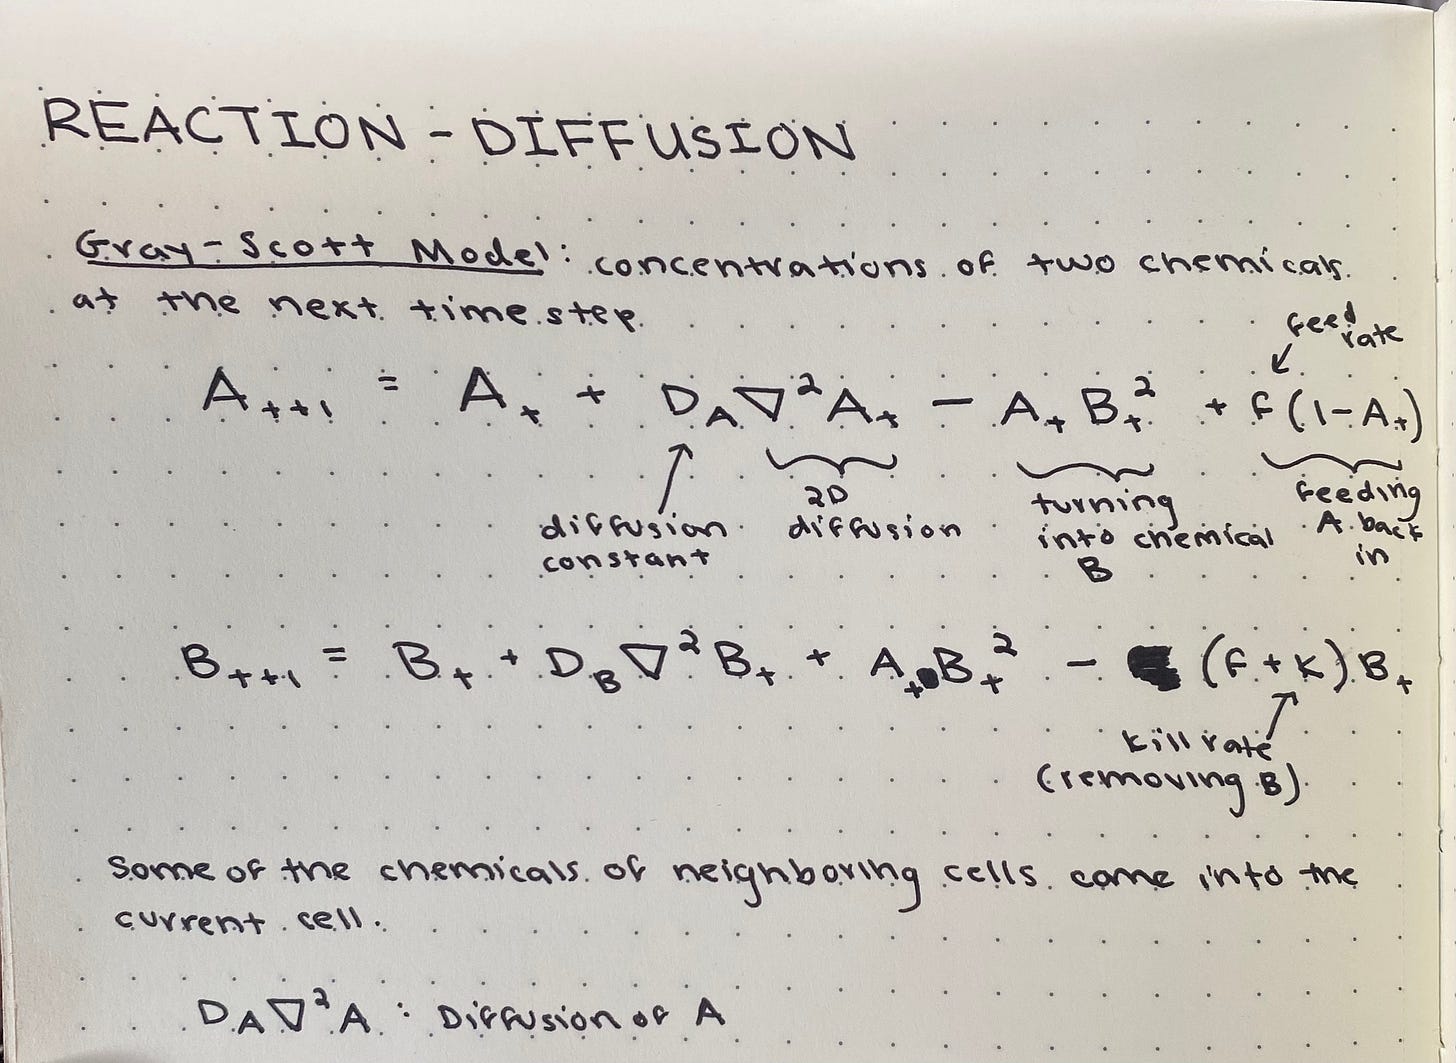 REACTION - DIFFUSION
Gray-Scott Model: concentrations of two chemicals
at the next time step.
feed
rate
Aₜ₊₁ = Aₜ + D_A ∇²Aₜ − AₜBₜ² + f(1−Aₜ)
diffusion
constant
2D
diffusion
turning
into chemical
B
feeding
A back
in
Bₜ₊₁ = Bₜ + D_B ∇²Bₜ + AₜBₜ² − (f+k)Bₜ
kill rate
(removing B)
Some of the chemicals of neighboring cells come into the
current cell.
D_A ∇²A : Diffusion of A